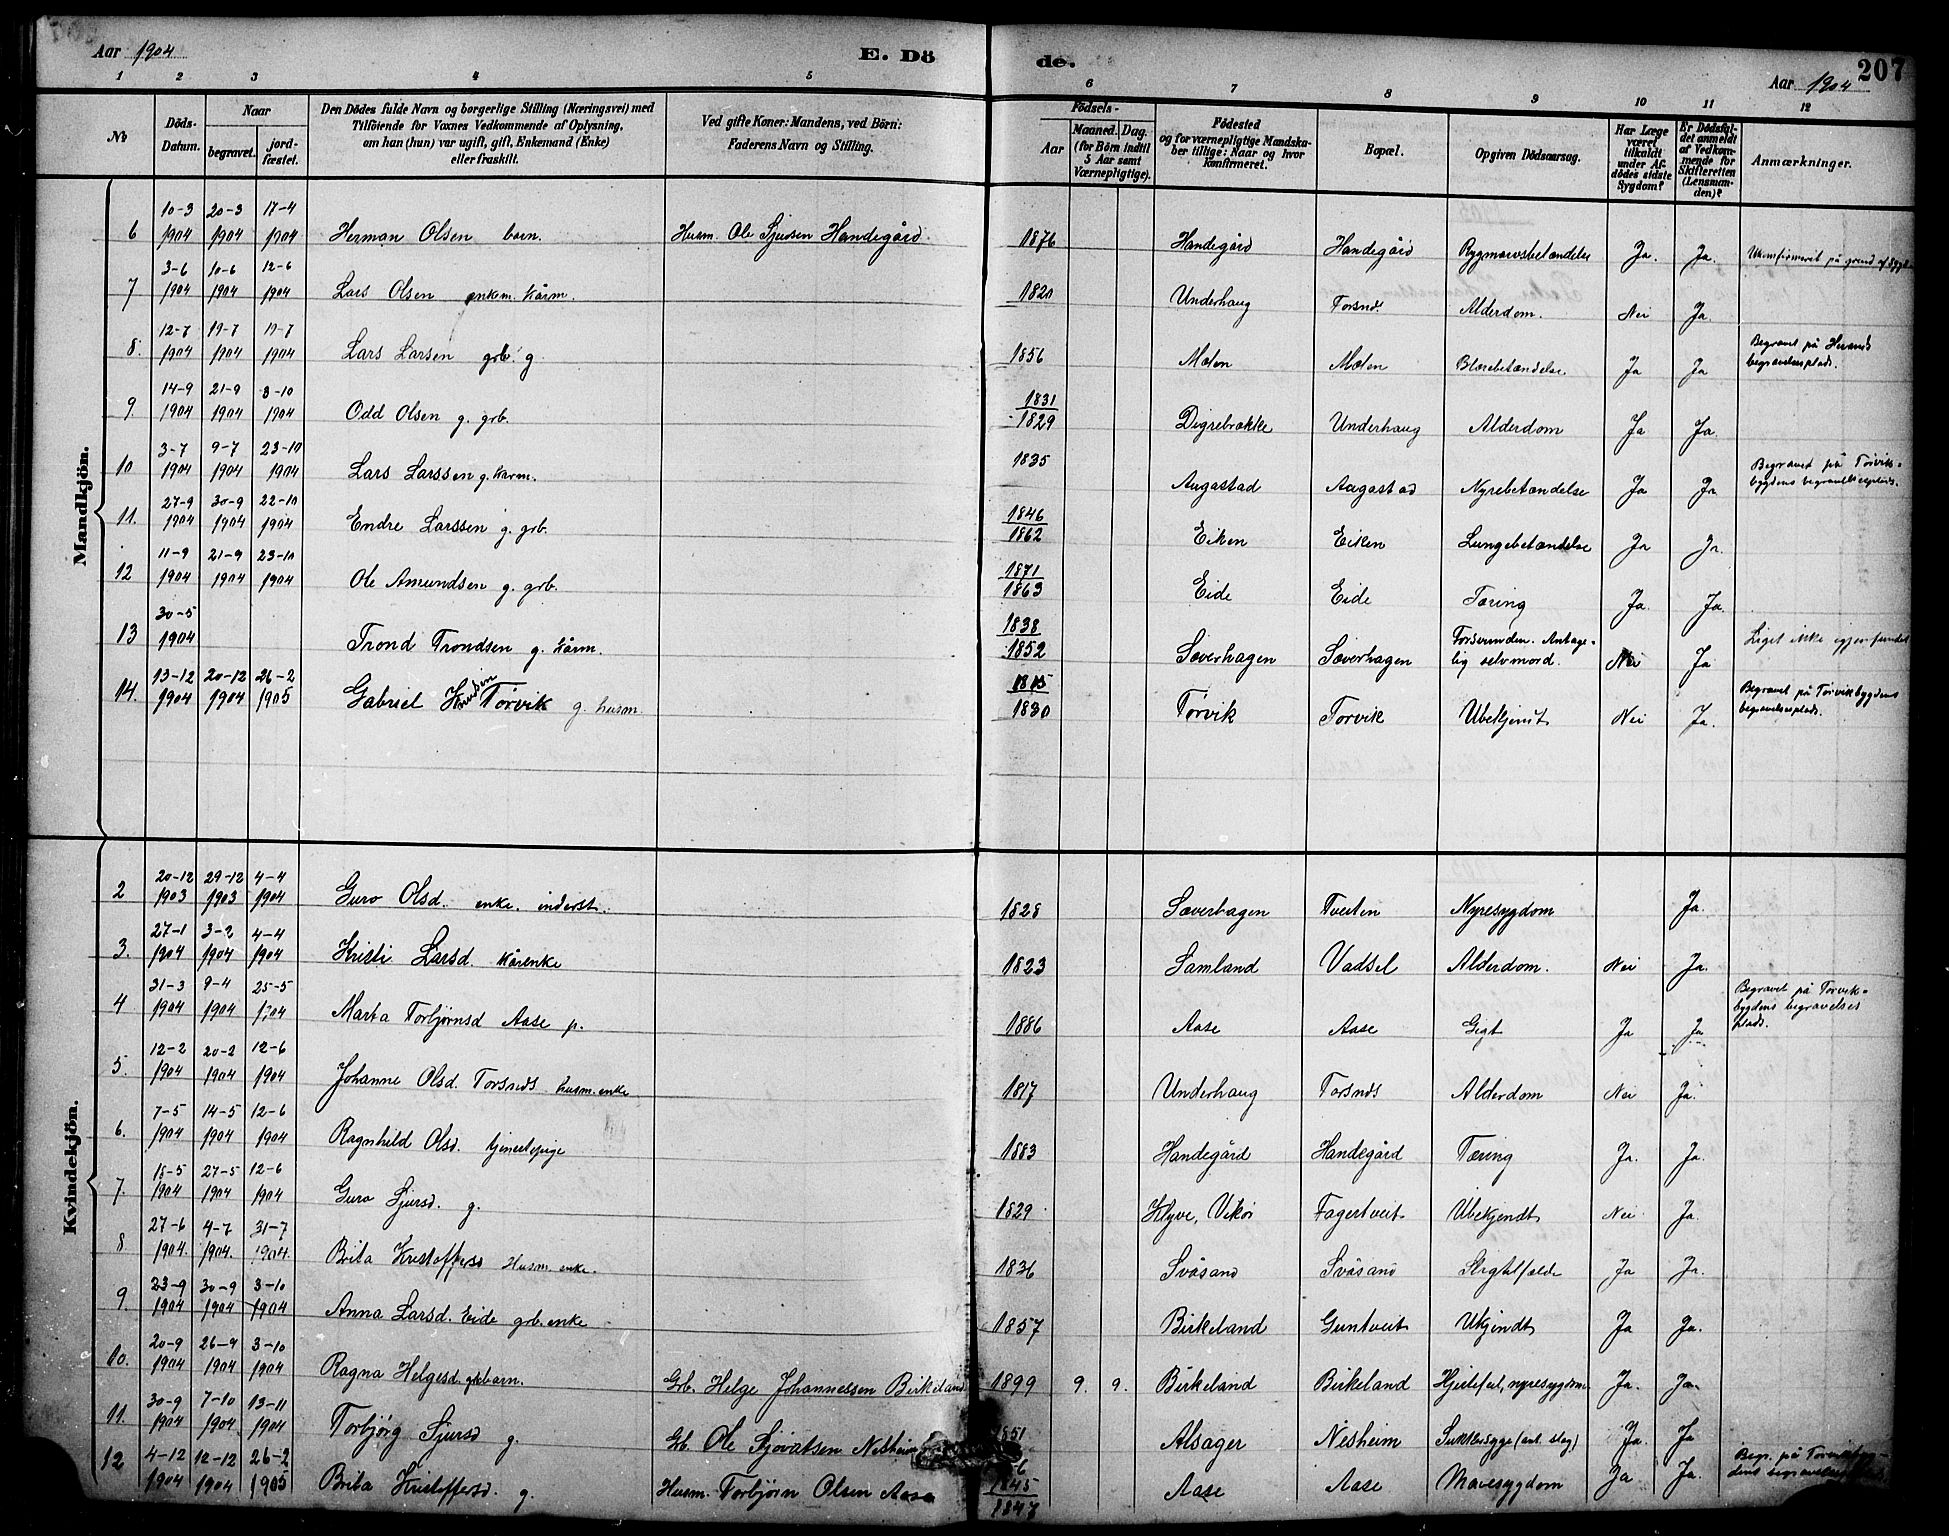 Aar 1904
E. Dö
de.
Aar 1904
207
1 2 3 4 5 6 7 8 9 10 11 12
№
Döds-Datum.
Naar
begravet. jord-fæstet.
Den Dödes fulde Navn og borgerlige Stilling (Næringsvei) med
Tilföiende for Voxnes Vedkommende af Oplysning,
om han (hun) var ugift, gift, Enkemand (Enke)
eller fraskilt.
Ved gifte Koner: Mandens, ved Börn:
Faderens Navn og Stilling.
Födsels-
Aar
Maaned. Dag.
(for Börn indtil
5 Aar samt
Værnepligtige).
Födested
og for værnepligtige Mandska-
ber tillige: Naar og hvor
konfirmeret.
Bopæl.
Opgiven Dödsaarsag.
Har Læge
været
tilkaldt
under Af-
dödes sidste
Sygdom?
Er Dödsfal-
det anmeldt
af Vedkom-
mende for
Skifteretten
(Lensman-
den)?
Anmærkninger.
Mandkjön.
6 10-3 1904 20-3 1904 17-4 1904 Herman Olsen barn. Husm. Ole Sjursen Handegård. 1876 Handegård Handegård Rygmarvsbetændelse Ja. Ja. Ukonfirmeret på grund af
7 3-6 1904 10-6 1904 12-6 1904 Lars Olsen enkm. kårm. 1820 Underhaug Torsnes. Alderdom. Nei Ja.
8. 12-7 1904 19-7 1904 19-7 1904 Lars Larsen grb. g. 1856 Molen Molen Blærebetændelse Ja Ja Begravet på Herands begravelsesplads.
9 14-9 1904 21-9 1904 3-10 1904 Odd Olsen g. grb. 1831 1829 Digrebrække Underhaug Alderdom Ja Ja.
10 3-7 1904 9-7 1904 23-10 1904 Lars Larssen g. karm. 1835 Augastad Augastad Nyrebetændelse Ja Ja Begravet på Torvik-bygdens begravelsesplads.
11. 27-9 1904 30-9 1904 22-10 1904 Endre Larssen g. grb. 1846 1862 Eiken Eiken Lungebetændelse Ja Ja.
12 11-9 1904 21-9 1904 23-10 1904 Ole Amundsen g. grb. 1871 1863 Eide Eide Tæring Ja. Ja.
13 30-5 1904 Trond Trondsen g. kårm. 1838 1852 Sæverhagen Sæverhagen Forsvunden. Antage-lig selvmord. Nei Ja Liget ikke igjenfundet
14. 13-12 1904 20-12 1904 26-2 1905 Gabriel Knudsen Tørvik g. husm. 1815 1830 Tørvik Torvik Ubekjendt Nei Ja. Begravet på Torvikbygdens begravelsesplads.
Kvindekjön.
2 20-12 1903 29-12 1903 4-4 1904 Guro Olsd. enke. inderst. 1828 Sæverhagen Tveiten Nyresygdom Ja.
3. 27-1 1904 3-2 1904 4-4 1904 Kristi Larsd. kårenke 1823 Samland Vadsel Alderdom. Nei Ja.
4 31-3 1904 9-4 1904 25-5 1904 Marta Torbjørnsd Aase p. 1886 Aase Aase Gigt Ja Ja Begravet på Torvik-bygdens begravelses plads.
5. 12-2 1904 20-2 1904 12-6 1904 Johanne Olsd. Torsnes husm. enke 1817 Underhaug Torsnes Alderdom Nei Ja.
6. 7-5 1904 14-5 1904 12-6 1904 Ragnhild Olsd. tjenestepige 1883 Handegård Handegård Tæring Ja. Ja.
7. 18-5 1904 27-5 1904 12-6 1904 Guro Sjursd. g. 1829 Klyve, Vikør Fagertveit Ubekjendt Nei Ja.
8 27-6 1904. 4-7 1904. 31-7 1904. Brita Kristoffersd Husm. enke. 1836 Svåsand Svåsand Ja Ja.
9. 23-9 1904 30-9 1904 3-10 1904 Anna Larsd. Eide grb. enke 1857 Birkeland Guntveit Ukjendt Ja Ja.
10. 20-9 1904 26-9 1904 3-10 1904 Ragna Helgesd. grbbarn. Grb. Helge Johannessen Birkeland 1899 9. 9. Birkeland Birkeland Hjertefeil, nyresygdom Ja. Ja.
11. 30-9 1904 7-10 1904 13-11 1904 Torbjørg Sjursd g. Grb. Ole Sjovatsen Nesheim 1851 Alsager Nesheim Sukkersyge (ant. slag) Ja. Ja
12 4-12 1904 12-12 1904 26-2 1905 Brita Kristoffersd. g. Husm. Torbjørn Olsen Aase 1845 1847 Aase Aase Mavesygdom Ja Ja. Begr. på Torvikbyg-dens